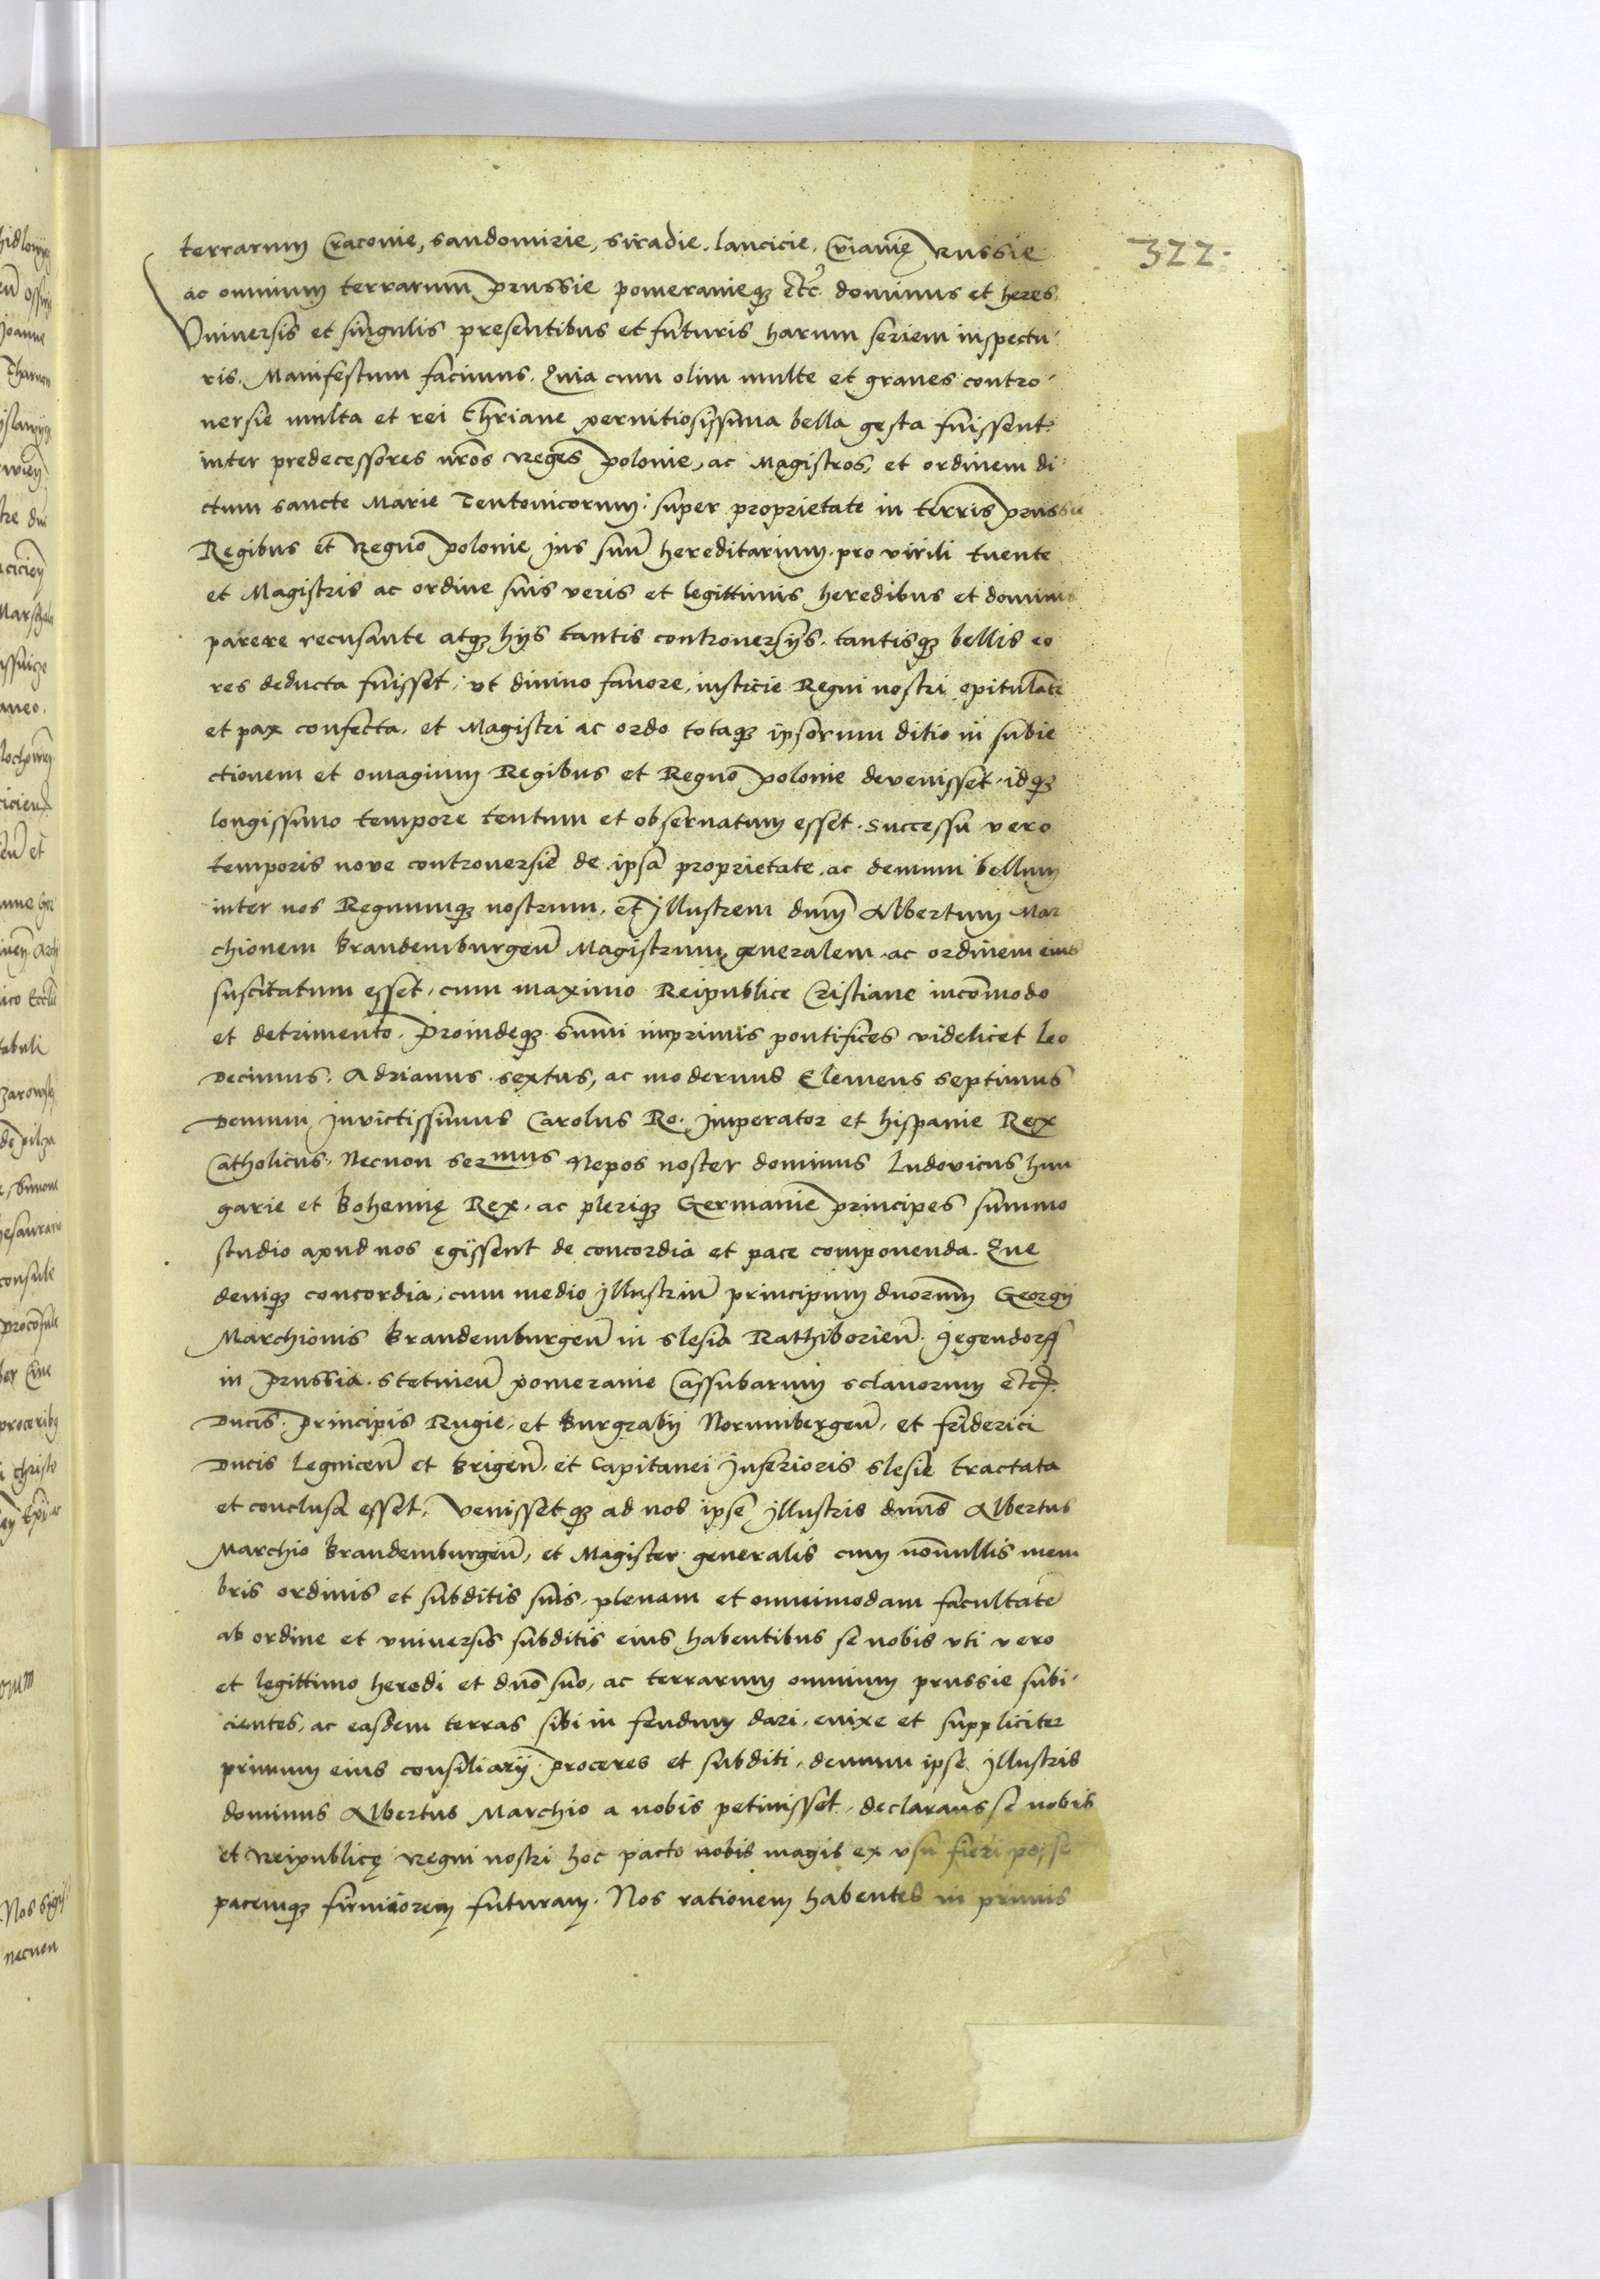 322.
terrarum Cracouie, sandomirie, siradie. lancicie, Cuiauię Russie
ac omnium terrarum prussie pomeranieq₃ etc. dominus et heres.
Vniuersis et singulis presentibus et futuris harum seriem inspectu
ris. Manifestum facimus. Quia cum olim multe et graues contro
uersie multa et rei Chriane pernitiosissima bella gesta fuissent
inter predecessores nros reges polonie, ac Magistros, et ordinem di
ctum sancte Marie Teutonicorum: super proprietate in terris prussie
Regibus et Regno polonie jus suu hereditarium. pro virili tuente
et Magistris ac ordine suis veris et legittimis heredibus et dominis
parere recusante atq₃ hijs tantis controuersijs. tantisq₃ bellis eo
res deducta fuisset, vt diuino fauore, iusticie Regni nostri opitulate
et pax confecta. et Magistri ac ordo totaq₃ ipsorum ditio in subie
ctionem et omagium Regibus et Regno polonie deuenisset. idq₃
longissimo tempore tentum et obseruatum esset. Successu vero
temporis noue controuersie de ipsa proprietate. ac demum bellum
inter nos Regnumq₃ nostrum, et jllustrem dnm Albertum Mar
chionem brandemburgen Magistrum generalem. ac ordinem eius
suscitatum esset, cum maximo Reipublice Cristiane incomodo
et detrimento. Proindeq₃ summi inprimis pontifices videlicet Leo
Decimus. Adrianus sextus, ac modernus Clemens septimus
Demum jnuictissimus Carolus Ro. jmperator et hispanie Rex
Catholicus. Necnon sermus Nepos noster dominus Ludouicus hun
garie et bohemię Rex. ac pleriq₃ Germanie principes summo
studio apud nos egissent de concordia et pace componenda. Que
deniq₃ concordia, cum medio jllustriu principum duorum Georgij
Marchionis brandemburgen in slesia Rathiborien. jegendorff
in prussia. stetinien pomeranie Cassubarum sclauorum etc.
Ducis. Principis Rugie, et burgrabij Norumbergen, et friderici
Ducis legnicen et brigen, et Capitanei jnferioris slesie tractata
et conclusa esset, venissetq₃ ad nos ipse jllustris dnus Albertus
Marchio brandemburgen, et Magister generalis cum nonnullis mem
bris ordinis et subditis suis, plenam et omnimodam facultate
ab ordine et vniuersis subditis eius habentibus se nobis vti vero
et legittimo heredi et dno suo, ac terrarum omnium prussie subi
cientes, ac easdem terras sibi in feudum dari, enixe et suppliciter
primum eius consiliarij proceres et subditi, demum ipse jllustris
dominus Albertus Marchio a nobis petiuisset, declarans se nobis
et Reipublicę Regni nostri hoc pacto nobis magis ex vsu fieri posse
pacemq₃ firmiorem futuram. Nos rationem habentes in primis